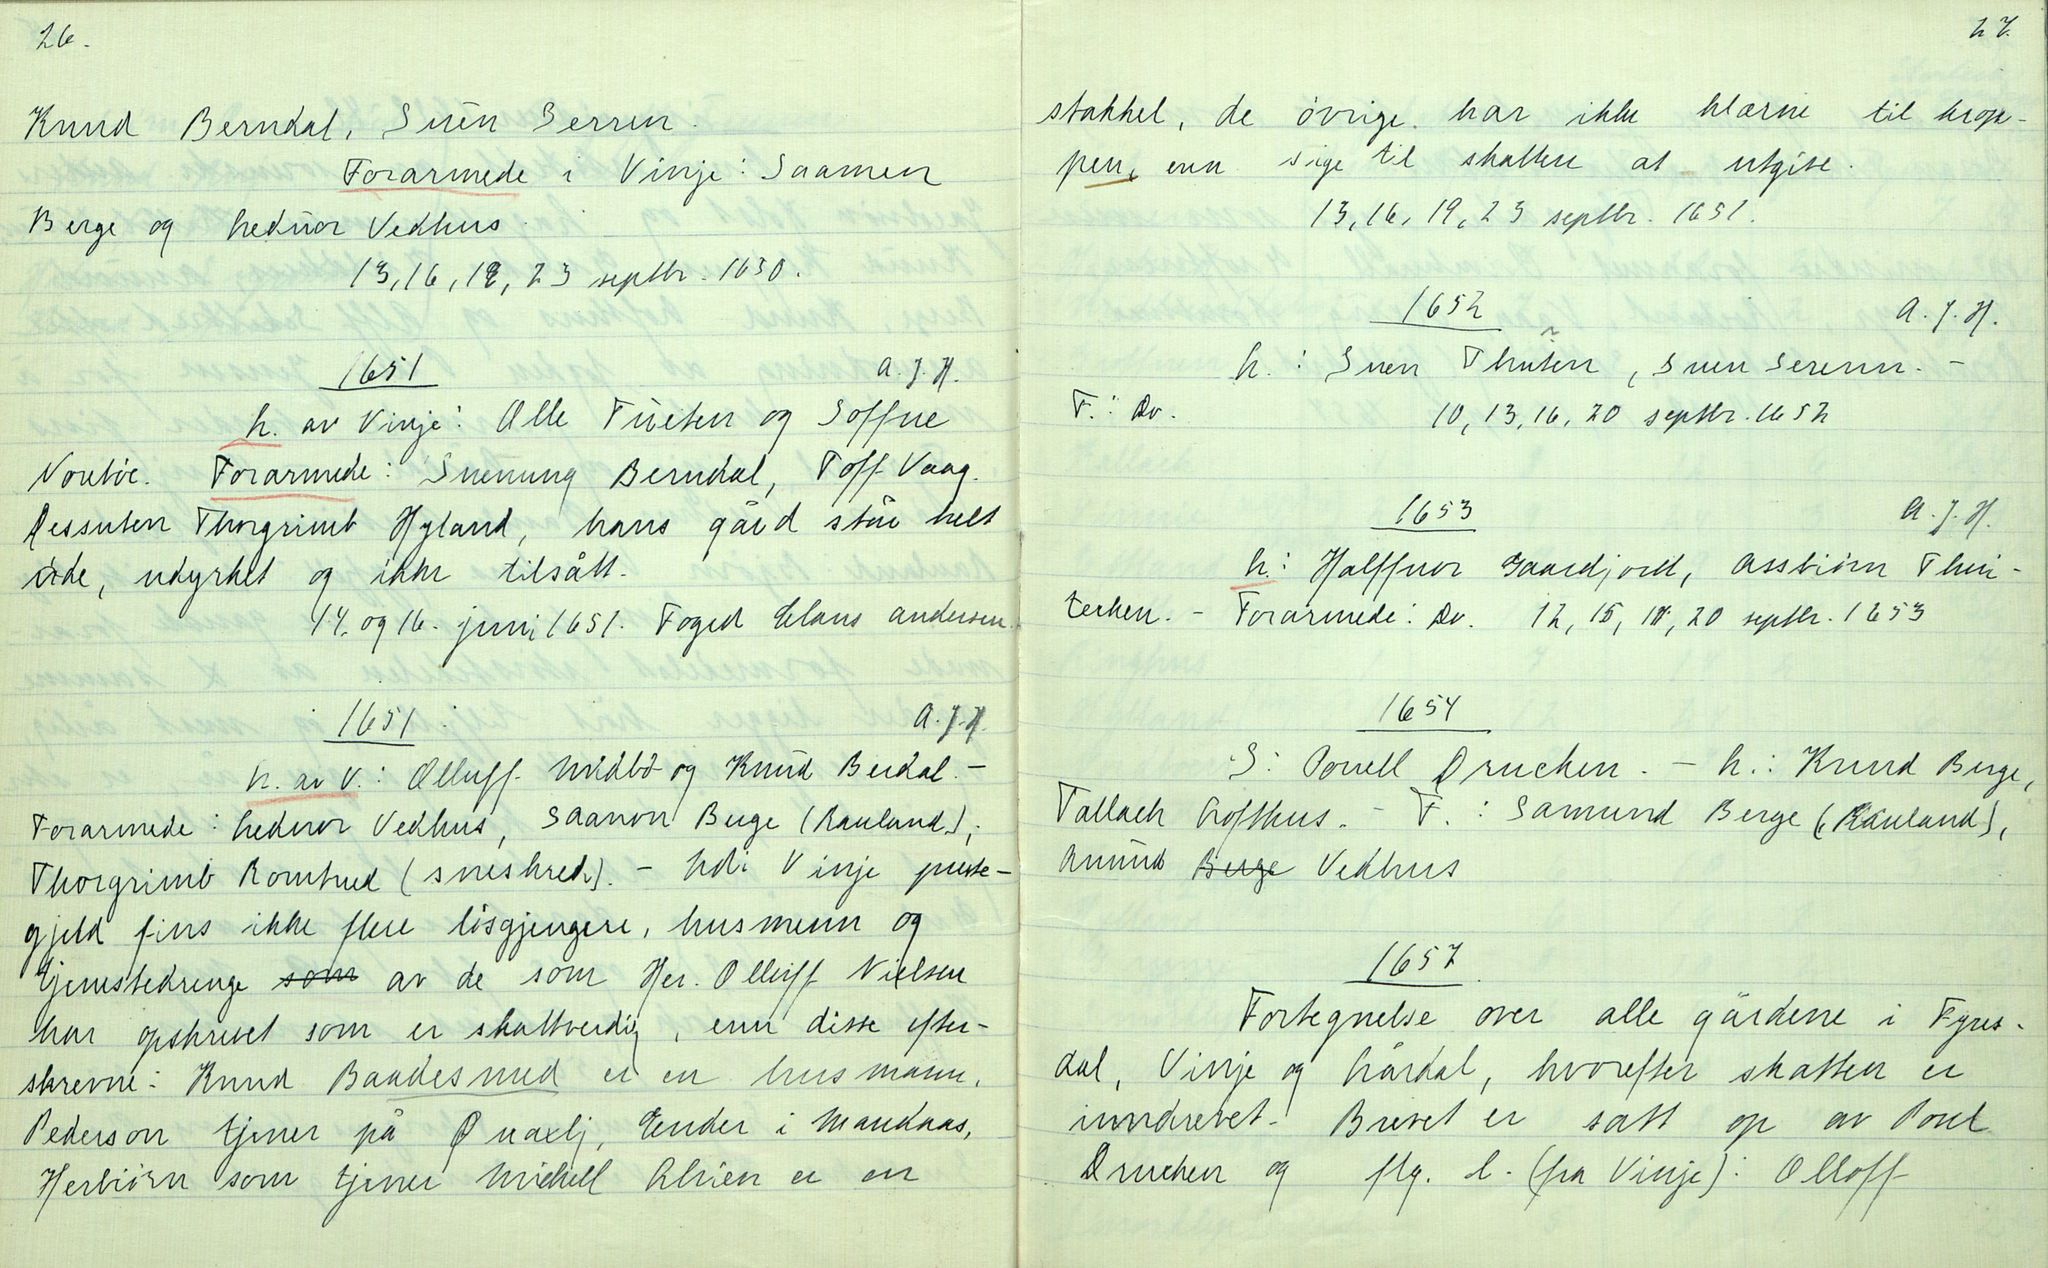 26.
Knud Berndal, Suên Serren.
Forarmede i Vinje: Saamen
Berge og Lednor Vedhus.
13, 16, 19, 23 septbr. 1650.
1651 A. J. H.
L. av Vinje: Olle Tueten og Soffne
Norbøe. Forarmede: Suenung Berndal, Toff Vaag.
Dessuten Thorgrimb Hyland, hans gård står helt
øde, udyrket og ikke tilsått.
14. og 16. juni 1651. Foged Claus Andersen.
1651 A. J. H.
L. av V.: Olluff Midbö og Knud Berdal. –
Forarmede: Lednor Vedhus, Saamon Berge (Rauland),
Thorgrimb Romtved (sneskred). – Udi Vinje preste-
gjeld fins ikke flere lösgjengere, husmenn og
tjenestedrenge som av de som Her. Olluff Nielsen
har opskrevet som er skattverdig, enn disse efter-
skrevne: Knud Baadesmed er en husmann,
Pederson tjener på Quaxlj, Ender i Mandaas,
Herbiörn som tjener Mickell Chrien er en
27.
stakkel, de övrige har ikke klærne til krop-
pen, enn sige til skatten at utgive.
13, 16, 19, 23 septbr. 1651.
1652 A. J. H.
L.: Suen Thuten, Suen Serenn. –
F.: Do. 10, 13, 16, 20 septbr. 1652
1653 A. J. H.
L.: Halffuor Gaardjord, Assbiörn Thui-
tecken. – Forarmede: Do. 12, 15, 18, 20 septbr. 1653
1654
S: Pouell Drucken. – L.: Knud Berge,
Tallack Loffthus. – F.: Samund Berge (Rauland),
Amund Berge Vedhus
1657.
Fortegnelse over alle gårdene i Fyres-
dal, Vinje og Lårdal, hvorefter skatten er
inndrevet. Brevet er satt op av Poul
Drucken og flg. l. (fra Vinje): Olloff